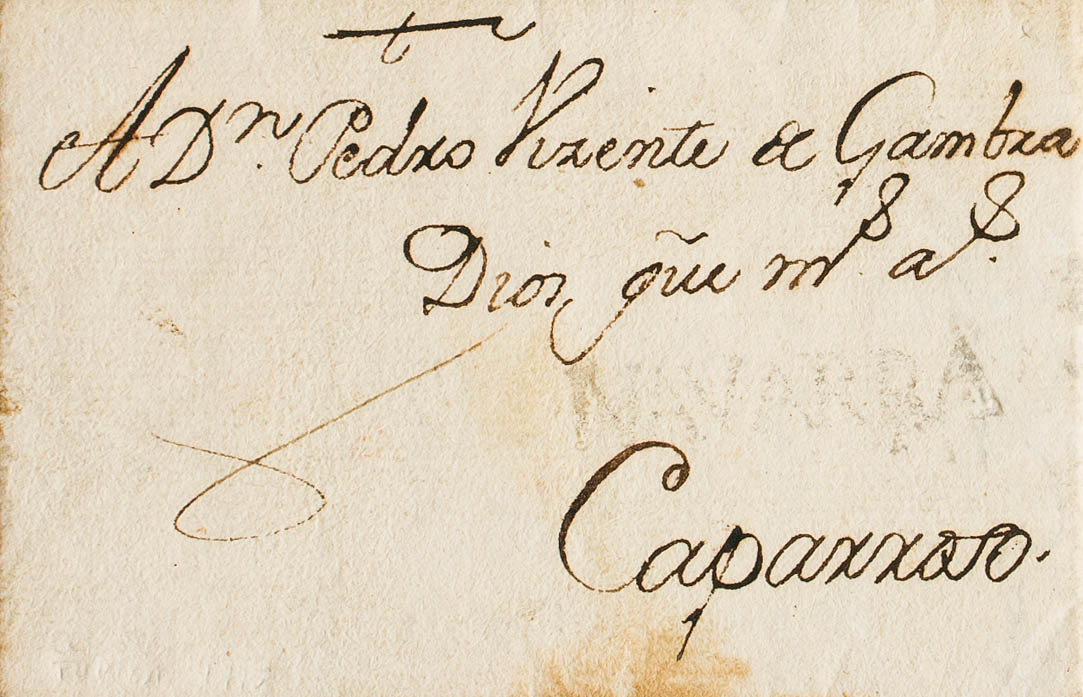 A Dn. Pedro Vizente de Gambra
Dios gũe ms. as.
NAVARRA
Caparroso.